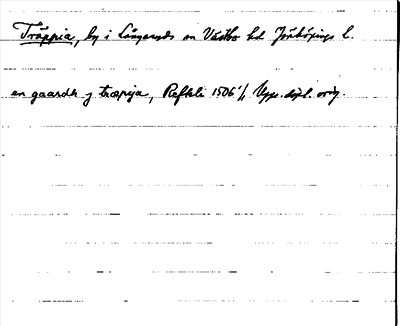 Träppia, by i Långaryds sn Västbo hd Jönköpings l.
en gaardh j træpija, Reftele 1506 1/1 Upps. dipl. orig.